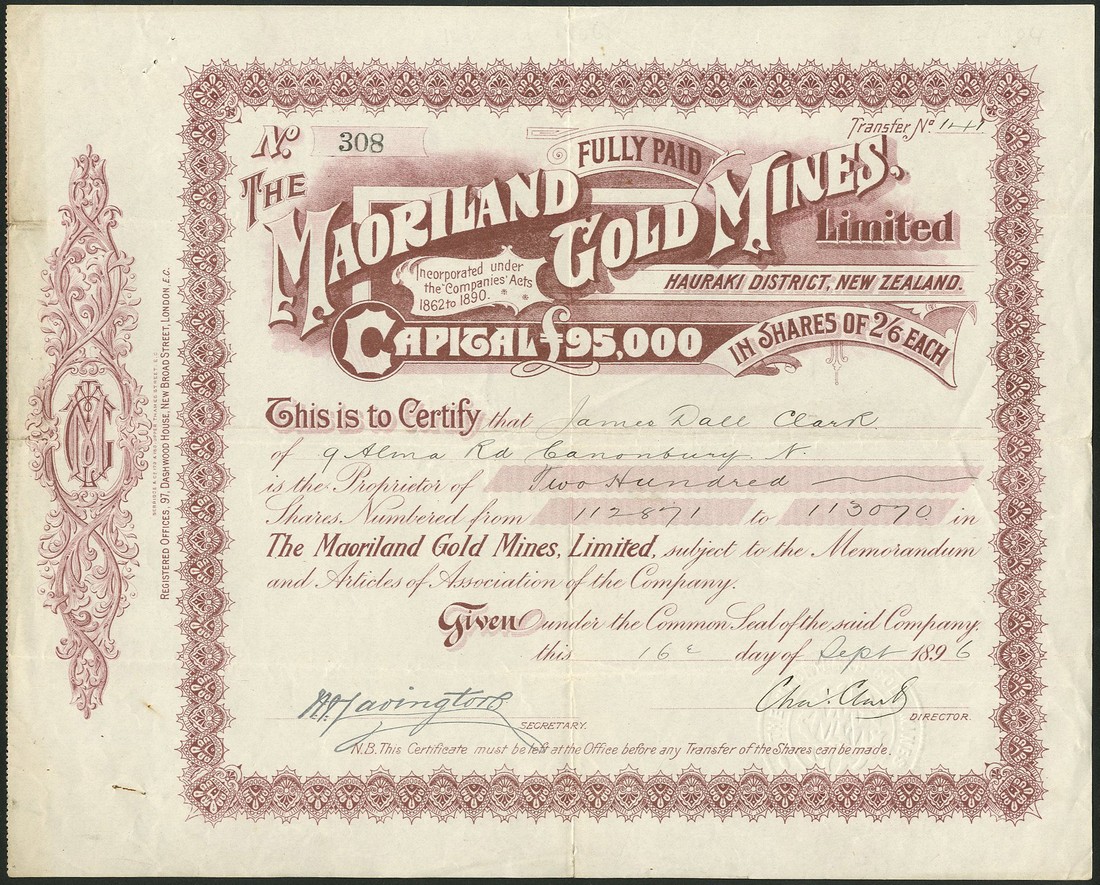 No. 308
Transfer No. 141
FULLY PAID
THE
MAORILAND GOLD MINES,
Limited
Incorporated under
the "Companies' Acts
1862 to 1890.
HAURAKI DISTRICT, NEW ZEALAND.
CAPITAL £95,000
IN SHARES OF 2/6 EACH
This is to Certify that James Dall Clark
of 9 Alma Rd Canonbury. N.
is the Proprietor of Two Hundred
Shares Numbered from 112871 to 113070. in
The Maoriland Gold Mines, Limited, subject to the Memorandum
and Articles of Association of the Company.
Given under the Common Seal of the said Company.
this 16 day of Sept 1896
Lavington
SECRETARY.
Chas. Clark
DIRECTOR.
N.B. This Certificate must be left at the Office before any Transfer of the Shares can be made.
REGISTERED OFFICES, 97, DASHWOOD HOUSE, NEW BROAD STREET, LONDON, E.C.